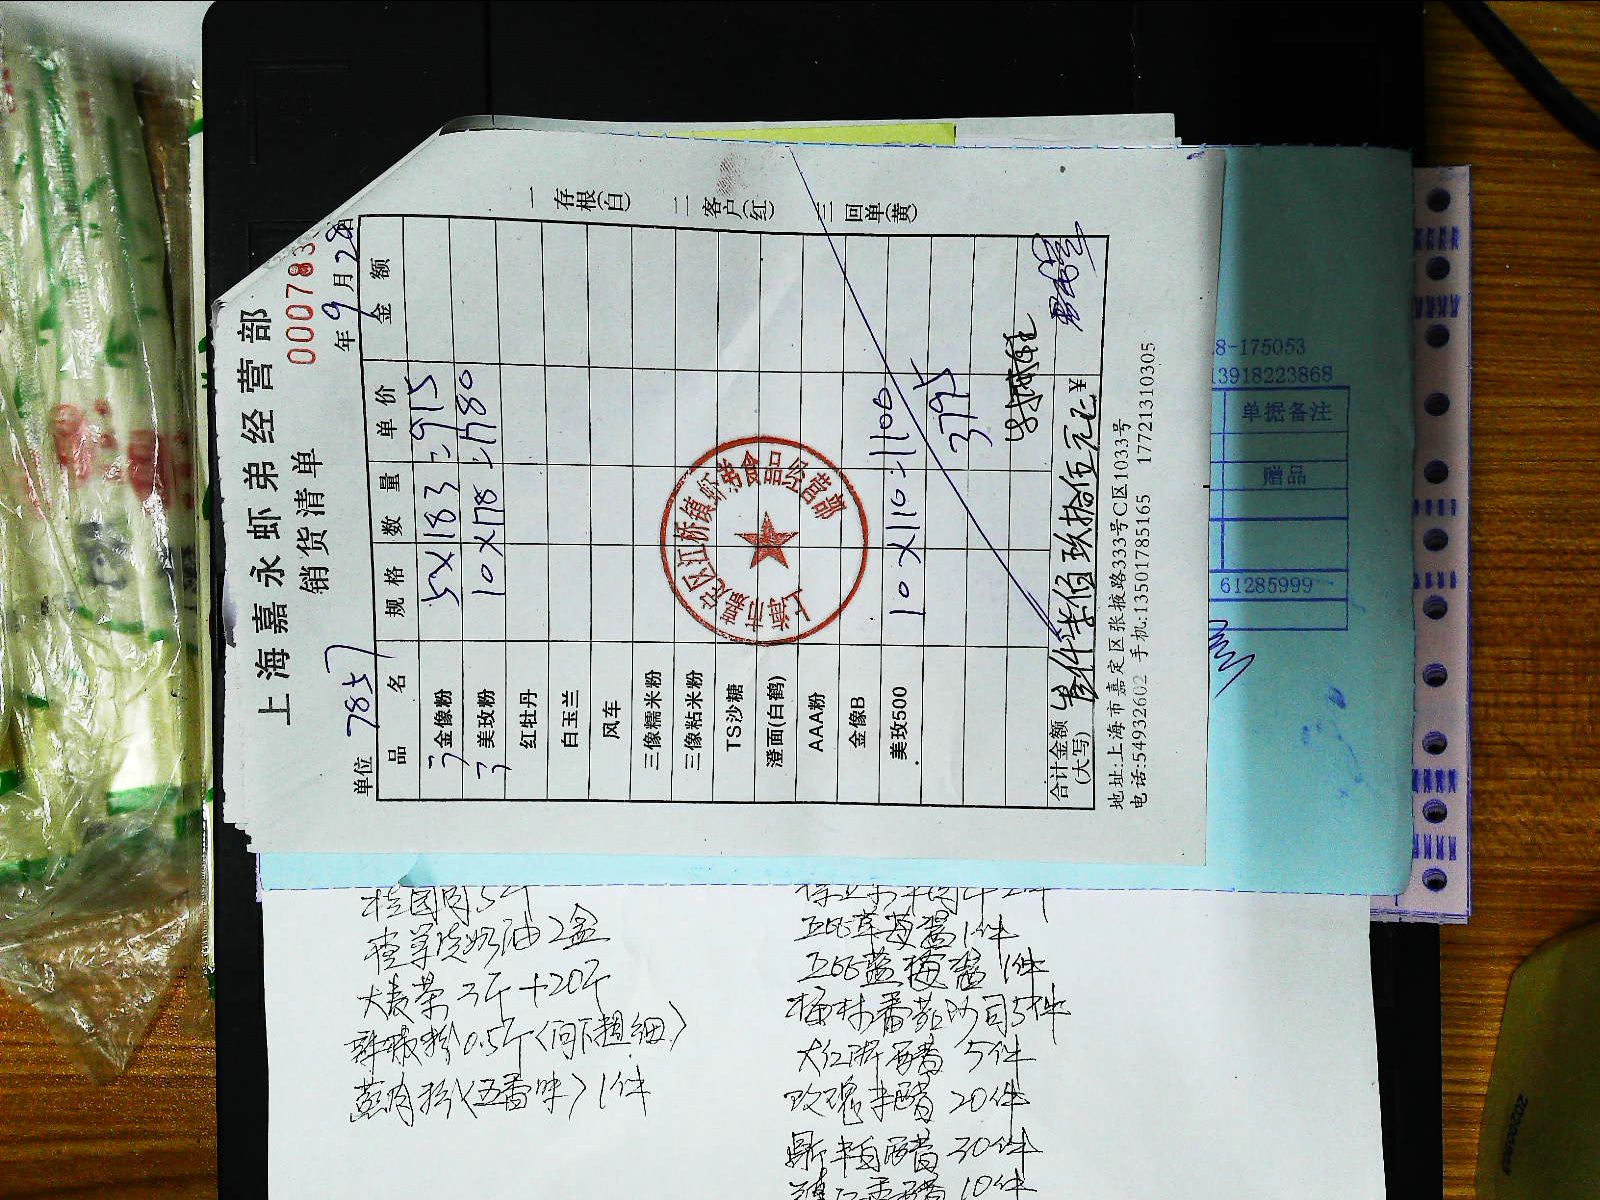 上海嘉永虾弟经营部
销货清单
000783
单位 7857
年9月28日
品名 规格 数量 单价 金额
金像粉 5×183=915
美玫粉 10×178=1780
红牡丹
白玉兰
风车
三像糯米粉
三像粘米粉
TS沙糖
澄面(白鹤)
AAA粉
金像B
美玫500 10×110=1100
3795
合计金额(大写) 叁仟柒佰玖拾伍元 ¥
地址:上海市嘉定区张掖路333号C区1033号
电话:54932602 手机:13501785165 17721310305
一存根(白)
二客户(红)
三回单(黄)
上海市嘉定区江桥镇虾弟食品经营部
8-175053
13918223868
单据备注
赠品
61285999
桂园肉5斤
2盒
大麦茶3斤+20斤
辣椒粉0.5斤(问下粗细)
(五香味)1件
草莓酱1件
蓝莓酱1件
番茄沙司5件
大红浙醋5件
玫瑰米醋20件
白醋30件
10件
202000003